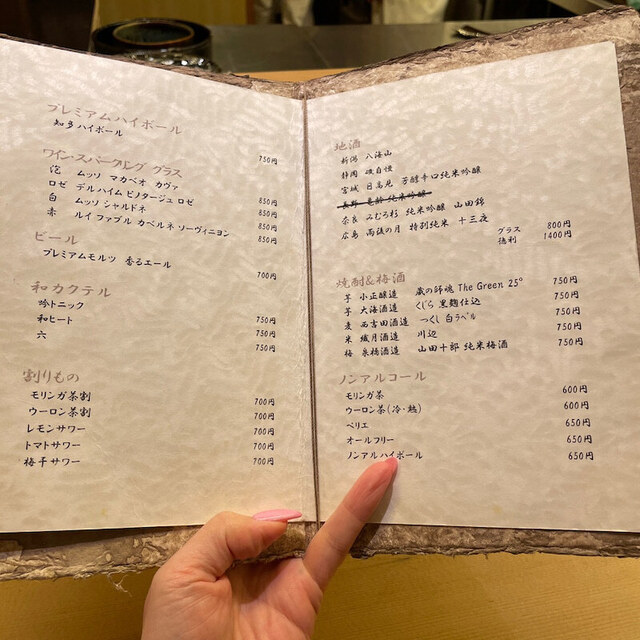 プレミアムハイボール
知多ハイボール 750円
ワイン・スパークリング グラス
泡 ムッソ マカベオ カヴァ 850円
ロゼ デルハイム ピノタージュ ロゼ 850円
白 ムッソ シャルドネ 850円
赤 ルイ ファブル カベルネ ソーヴィニヨン 850円
ビール
プレミアムモルツ 香るエール 700円
和カクテル
吟トニック 750円
和ヒート 750円
六 750円
割りもの
モリンガ茶割 700円
ウーロン茶割 700円
レモンサワー 700円
トマトサワー 700円
梅干サワー 700円
地酒
新潟 八海山
静岡 磯自慢
宮城 日高見 芳醇辛口純米吟醸
長野 亀齢 純米吟醸
奈良 みむろ杉 純米吟醸 山田錦
広島 雨後の月 特別純米 十三夜
グラス 800円
徳利 1400円
焼酎&梅酒
芋 小正醸造 蔵の師魂 The Green 25° 750円
芋 大海酒造 くじら 黒麹仕込 750円
麦 西吉田酒造 つくし 白ラベル 750円
米 繊月酒造 川辺 750円
梅 泉橋酒造 山田十郎 純米梅酒 750円
ノンアルコール
モリンガ茶 600円
ウーロン茶(冷・熱) 600円
ペリエ 650円
オールフリー 650円
ノンアルハイボール 650円